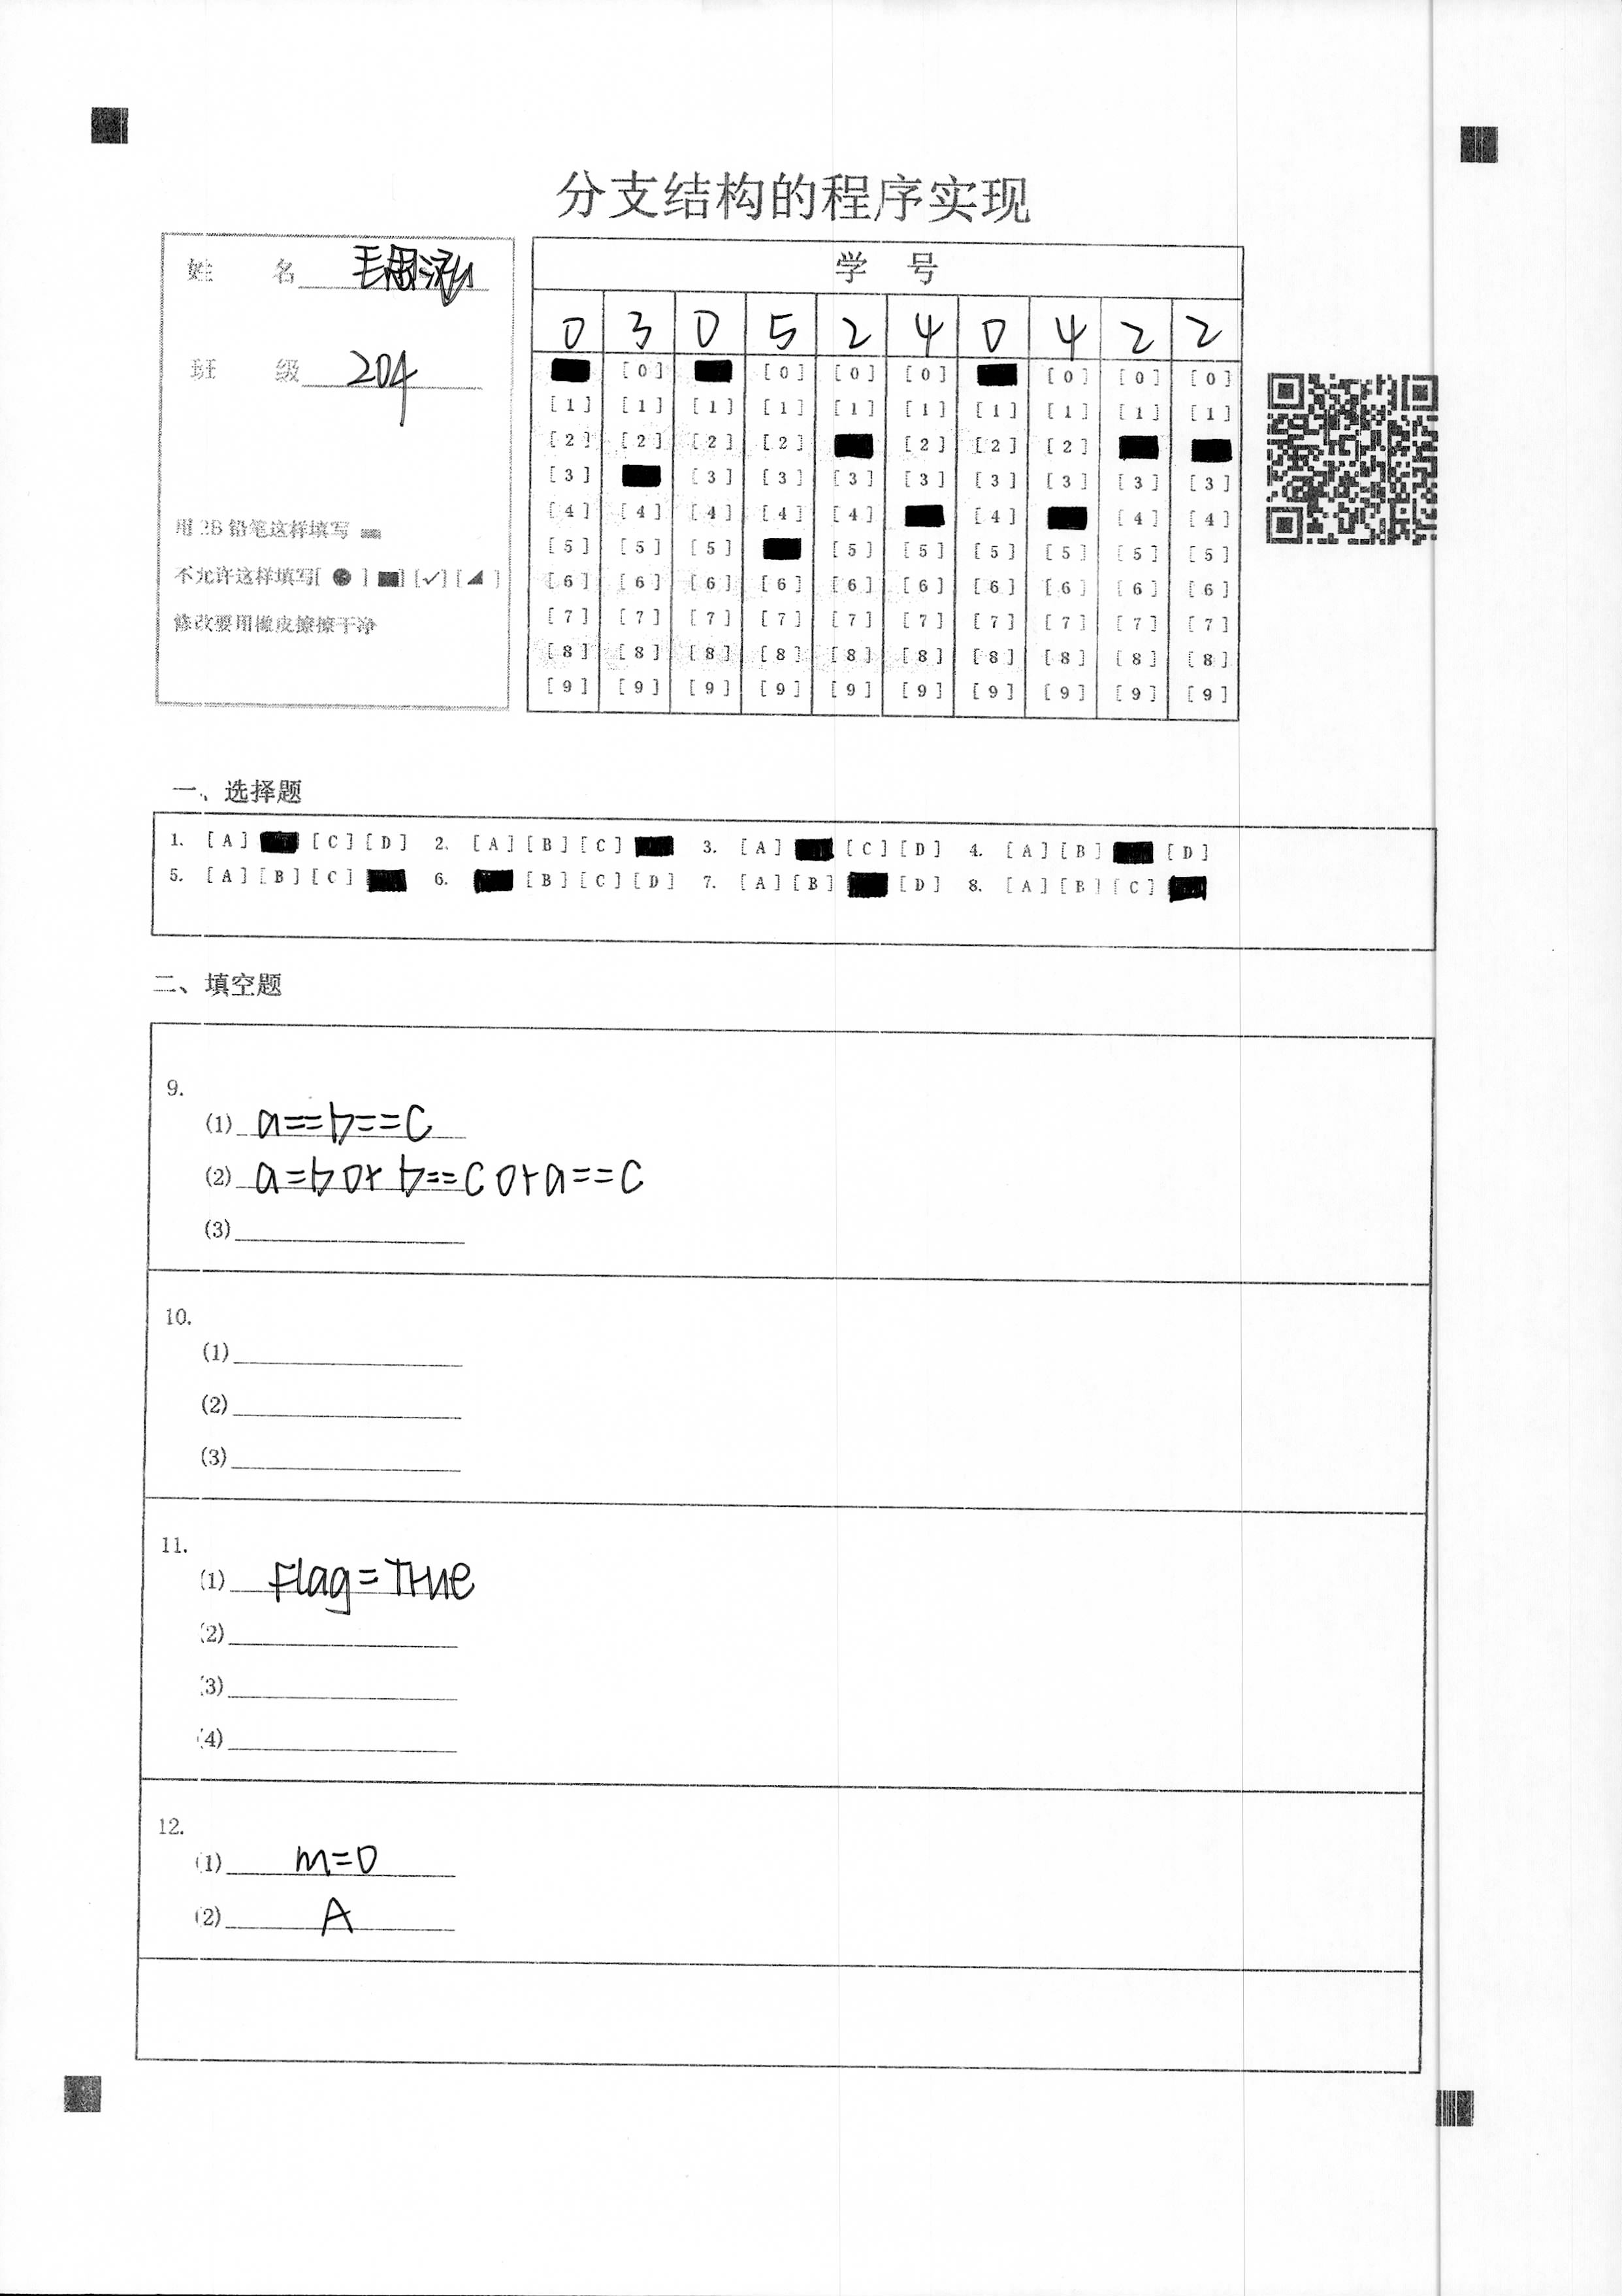 分支结构的程序实现
姓 名 毛思泓
班 级 204
用 2B 铅笔这样填写
不允许这样填写[ ● ] [✓] [ ]
修改要用橡皮擦擦干净
学 号
0 3 0 5 2 4 0 4 2 2
[0] [0] [0] [0] [0] [0] [0]
[1] [1] [1] [1] [1] [1] [1] [1] [1] [1]
[2] [2] [2] [2] [2] [2] [2]
[3] [3] [3] [3] [3] [3] [3] [3] [3]
[4] [4] [4] [4] [4] [4] [4] [4]
[5] [5] [5] [5] [5] [5] [5] [5] [5]
[6] [6] [6] [6] [6] [6] [6] [6] [6] [6]
[7] [7] [7] [7] [7] [7] [7] [7] [7] [7]
[8] [8] [8] [8] [8] [8] [8] [8] [8] [8]
[9] [9] [9] [9] [9] [9] [9] [9] [9] [9]
一、选择题
1. [A] [C] [D] 2. [A] [B] [C] 3. [A] [C] [D] 4. [A] [B] [D]
5. [A] [B] [C] 6. [B] [C] [D] 7. [A] [B] [D] 8. [A] [B] [C]
二、填空题
9.
(1) a==b==c
(2) a=b or b==c or a==c
(3)
10.
(1)
(2)
(3)
11.
(1) Flag=True
(2)
(3)
(4)
12.
(1) m=0
(2) A